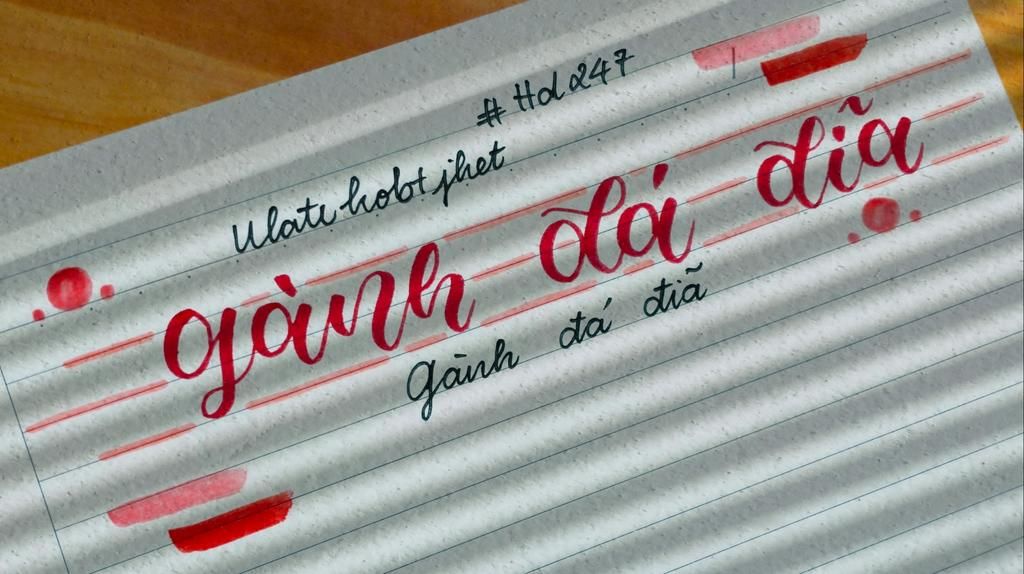 #Hd247
Ulatekobt jhet
gành đá đĩa
Gành đá điã